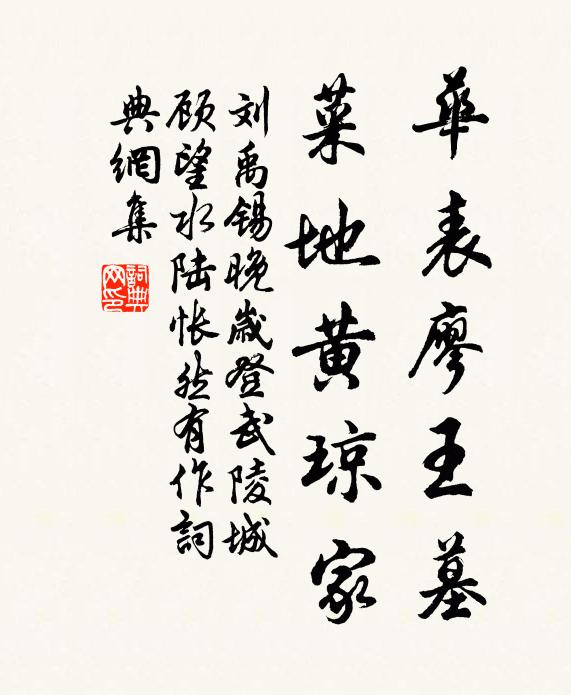 華表廖王墓
菜地黄琼家
刘禹锡晚歲登武陵城
顾望水陆怅然有作詞
典網集
詞典网印